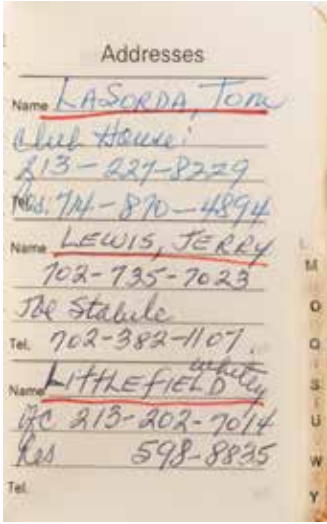 Addresses
Name LASORDA, Tom
Club House:
213-227-8229
Tel. Res. 714-870-4894
Name LEWIS, JERRY
702-735-7023
Joe Stabile
Tel. 702-382-1107
Whitey
Name LITTLEFIELD
ofc 213-202-7014
Res 598-8835
Tel.
L
M
O
Q
S
U
W
Y